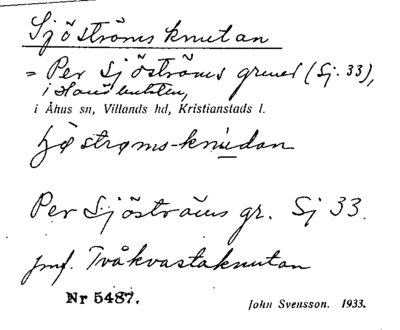 Sjöströms knutan
= Per Sjöströms grund (Sj. 33),
i Åhus sn, Villands hd, Kristianstads l.
Per Sjöströms gr. Sj 33.
jmf. Tvåkvastaknutan
Nr 5487.
John Svensson. 1933.